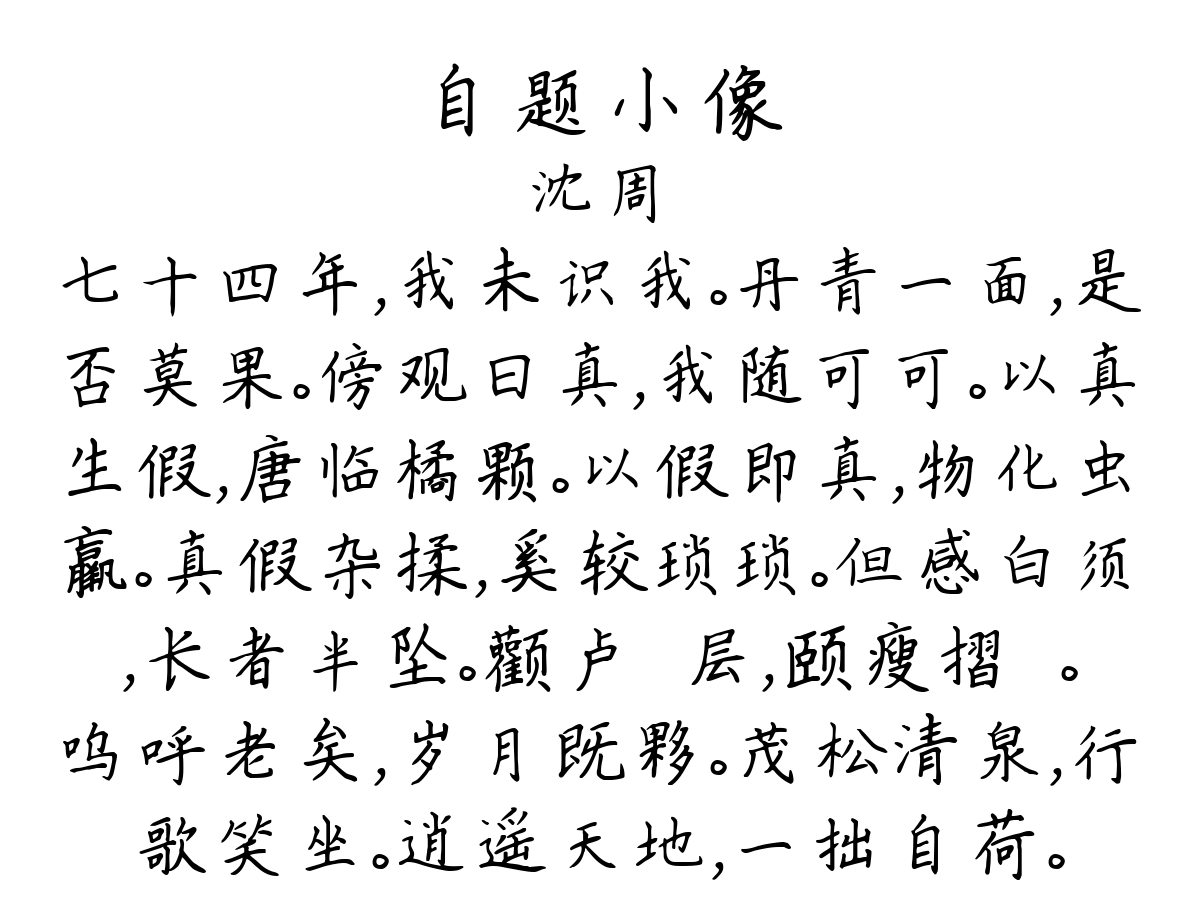 自题小像
沈周
七十四年,我未识我。丹青一面,是
否莫果。傍观曰真,我随可可。以真
生假,唐临橘颗。以假即真,物化虫
赢。真假杂揉,奚较琐琐。但感白须
,长者半坠。颧卢 层,颐瘦摺 。
呜呼老矣,岁月既夥。茂松清泉,行
歌笑坐。逍遥天地,一拙自荷。